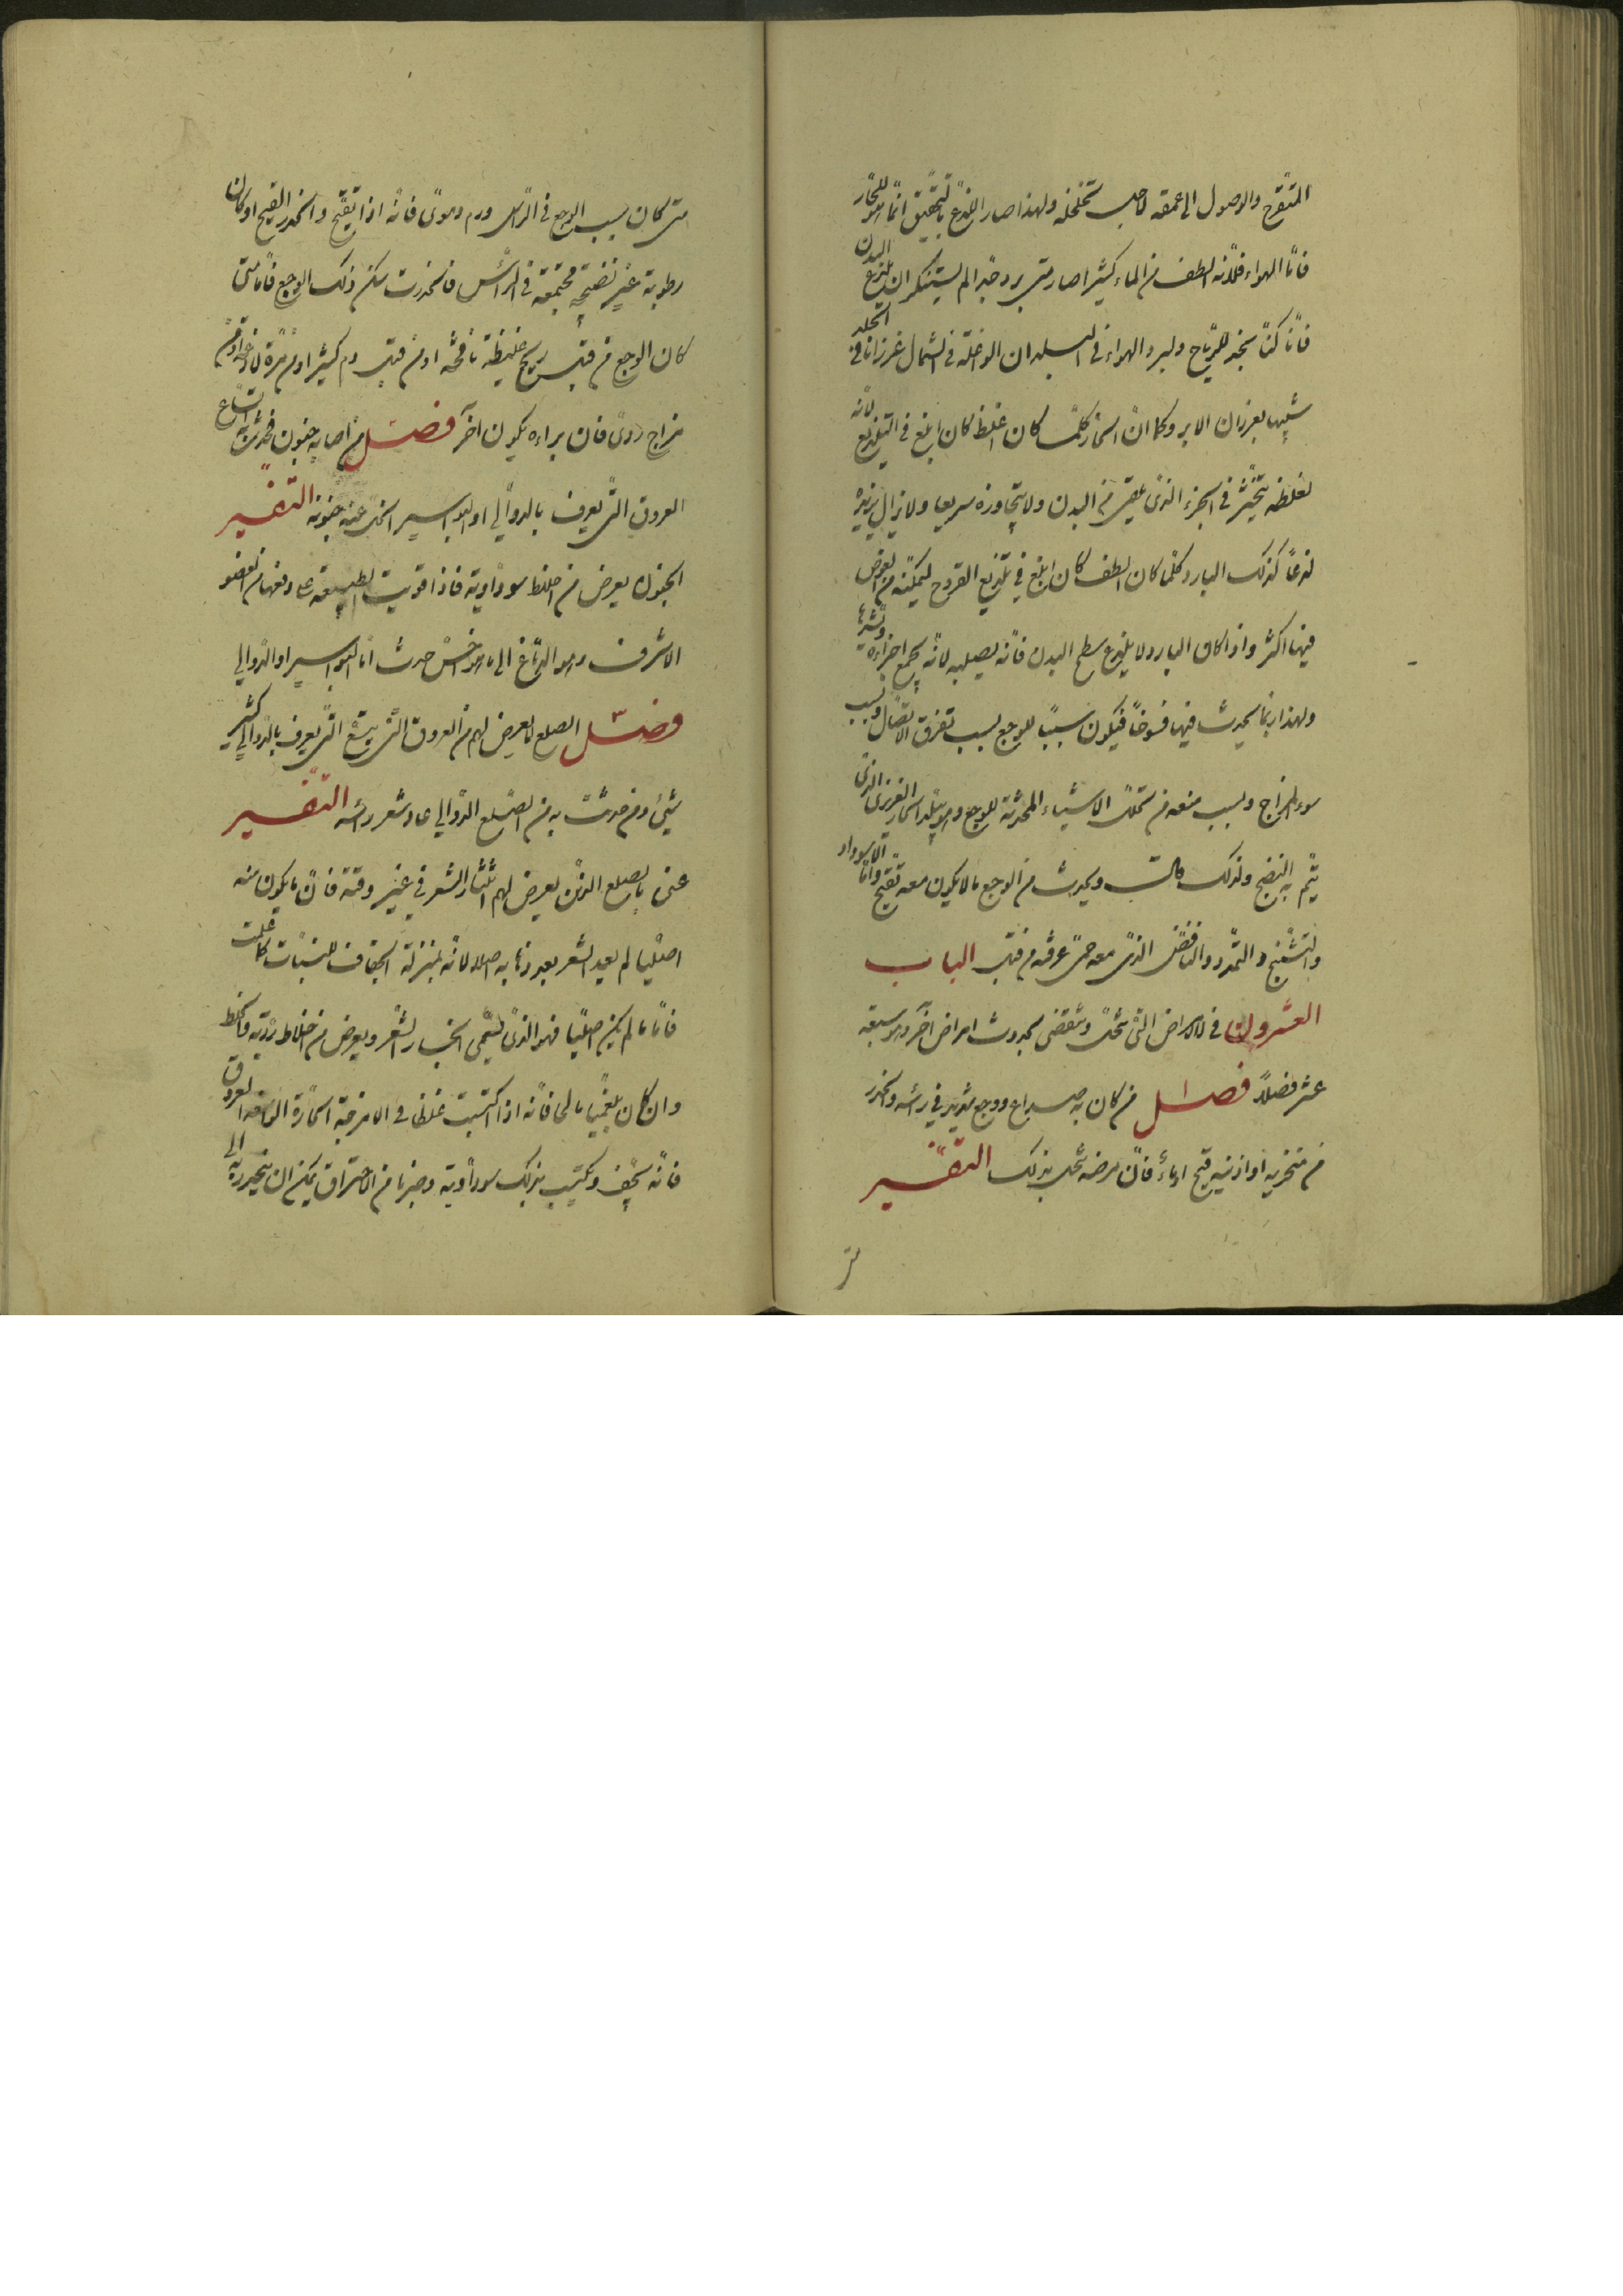 المتقرح والوصول الى عمقه لاجل تخلخله ولهذا صار اللذع بالتحقيق انما هو للحار
فاما الهواء فلانه الطف من الماء كثيرا صار متى برد جدا لم يستنكر ان يلذع البدن
فانا كنا نجد للرياح ولبرد الهواء فى البلدان الداخلة فى الشمال غرزانا فى الجلد
شبيها بغرزان الابر وكما ان الحار كلما كان اغلظ كان ابلغ فى التلذيع لانه
لغلظه يتحيز فى الجزء الذى يلقى من البدن ولا يتجاوزه سريعا ولا يزال يزيده
لذعا كذلك البارد كلما كان الطف كان ابلغ فى تلذيع القروح ليمكنه من الغوص
فيها اكثر واذا كان البارد لا يلذع سطح البدن فانه يصلبه لانه يجمع اجزاءه
ولهذا ربما يحدث فيها فسوخا فيكون سببا للوجع بسبب تفرق الاتصال وبسبب
سوء المزاج وبسبب منعه من تحلل الاشياء المحدثة للوجع وهو يبلد الحار الغريزى الذى
يتم به النضج ولذلك قالت ويحدث من الوجع ما لا يكون معه تقيح واما الاسوداد
والتشنج والتمدد والنافض الذى معه حمى عرفه من قبل الباب
العشرون فى الامراض التى تنحل وتنقضى بحدوث امراض اخر وهو سبعة
عشر فصلا فصل من كان به صداع ووجع شديد فى راسه وانحدر
من منخريه او اذنيه قيح او ماء فان مرضه ينحل بذلك التفسير
متى كان سبب الوجع فى الراس ورم دموى فانه اذا تقيح وانحدر القيح او كان
رطوبة غير نضيجة مجتمعة فى الراس فانحدرت سكن ذلك الوجع فاما متى
كان الوجع من قبل ريح غليظة نافخة او من قبل دم كثير او من مرة لاذعة او من
مزاج ردى فان براءه يكون اخر فصل من اصابه جنون فحدث به اتساع
العروق التى يعرف بالدوالى او البواسير انحل عنه جنونه التفسير
الجنون يعرض من اخلاط سوداوية فاذا قويت الطبيعة على دفعها من العضو
الاشرف وهو الدماغ الى ما هو اخس حدث اما البواسير او الدوالى
فصل الصلع لا يعرض لهم من العروق التى يتسع التى يعرف بالدوالى كثير
شئ ومن حدث به من الصلع الدوالى عاد شعر راسه التفسير
عنى بالصلع الذين يعرض لهم انتثار الشعر فى غير وقته فان ما يكون منه
اصليا لم يعد الشعر بعد ذهابه اصلا لانه بمنزلة الجفاف للنبات كما علمت
فاما ما لم يكن اصليا فهو الذى يسمى انحسار الشعر ويعرض من اخلاط ردية
وان كان بلغميا مالحا فانه اذا اكتسبت غلظا فى الامزجة الحارة الواسعة العروق
فانه يجف ويكتسب بذلك سوداوية وضربا من الاحتراق يمكن ان ينحدر به الى